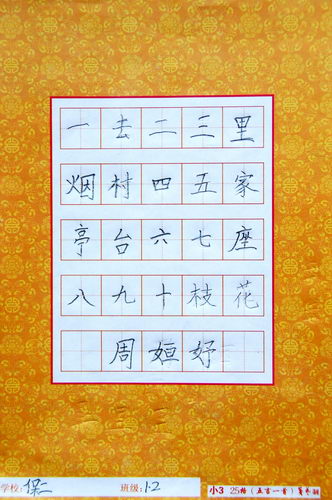 一去二三里
烟村四五家
亭台六七座
八九十枝花
周姮妤
学校:保二 班级:1.2 小3 25格(五言一首)